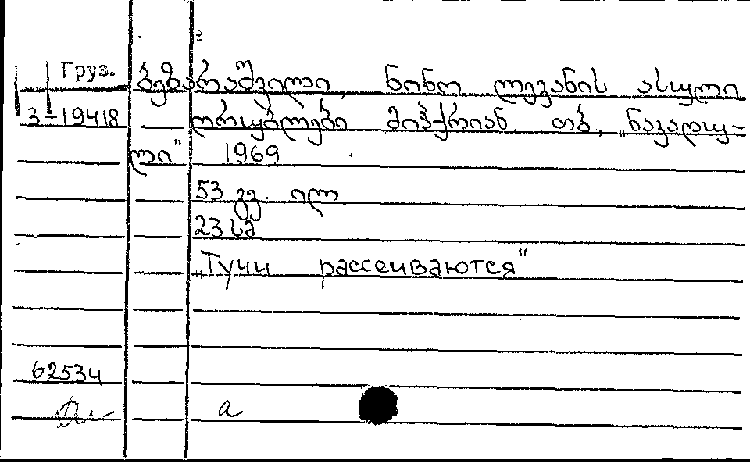 Груз. ბეზარაშვილი, ნინო ლევანის ასული
3-19418 ღრუბლები მიჰქრიან თბ., „ნაკადუ-
ლი" 1969
53 გვ. ილ
23 სმ
„Тучи рассеиваются"
62534
a